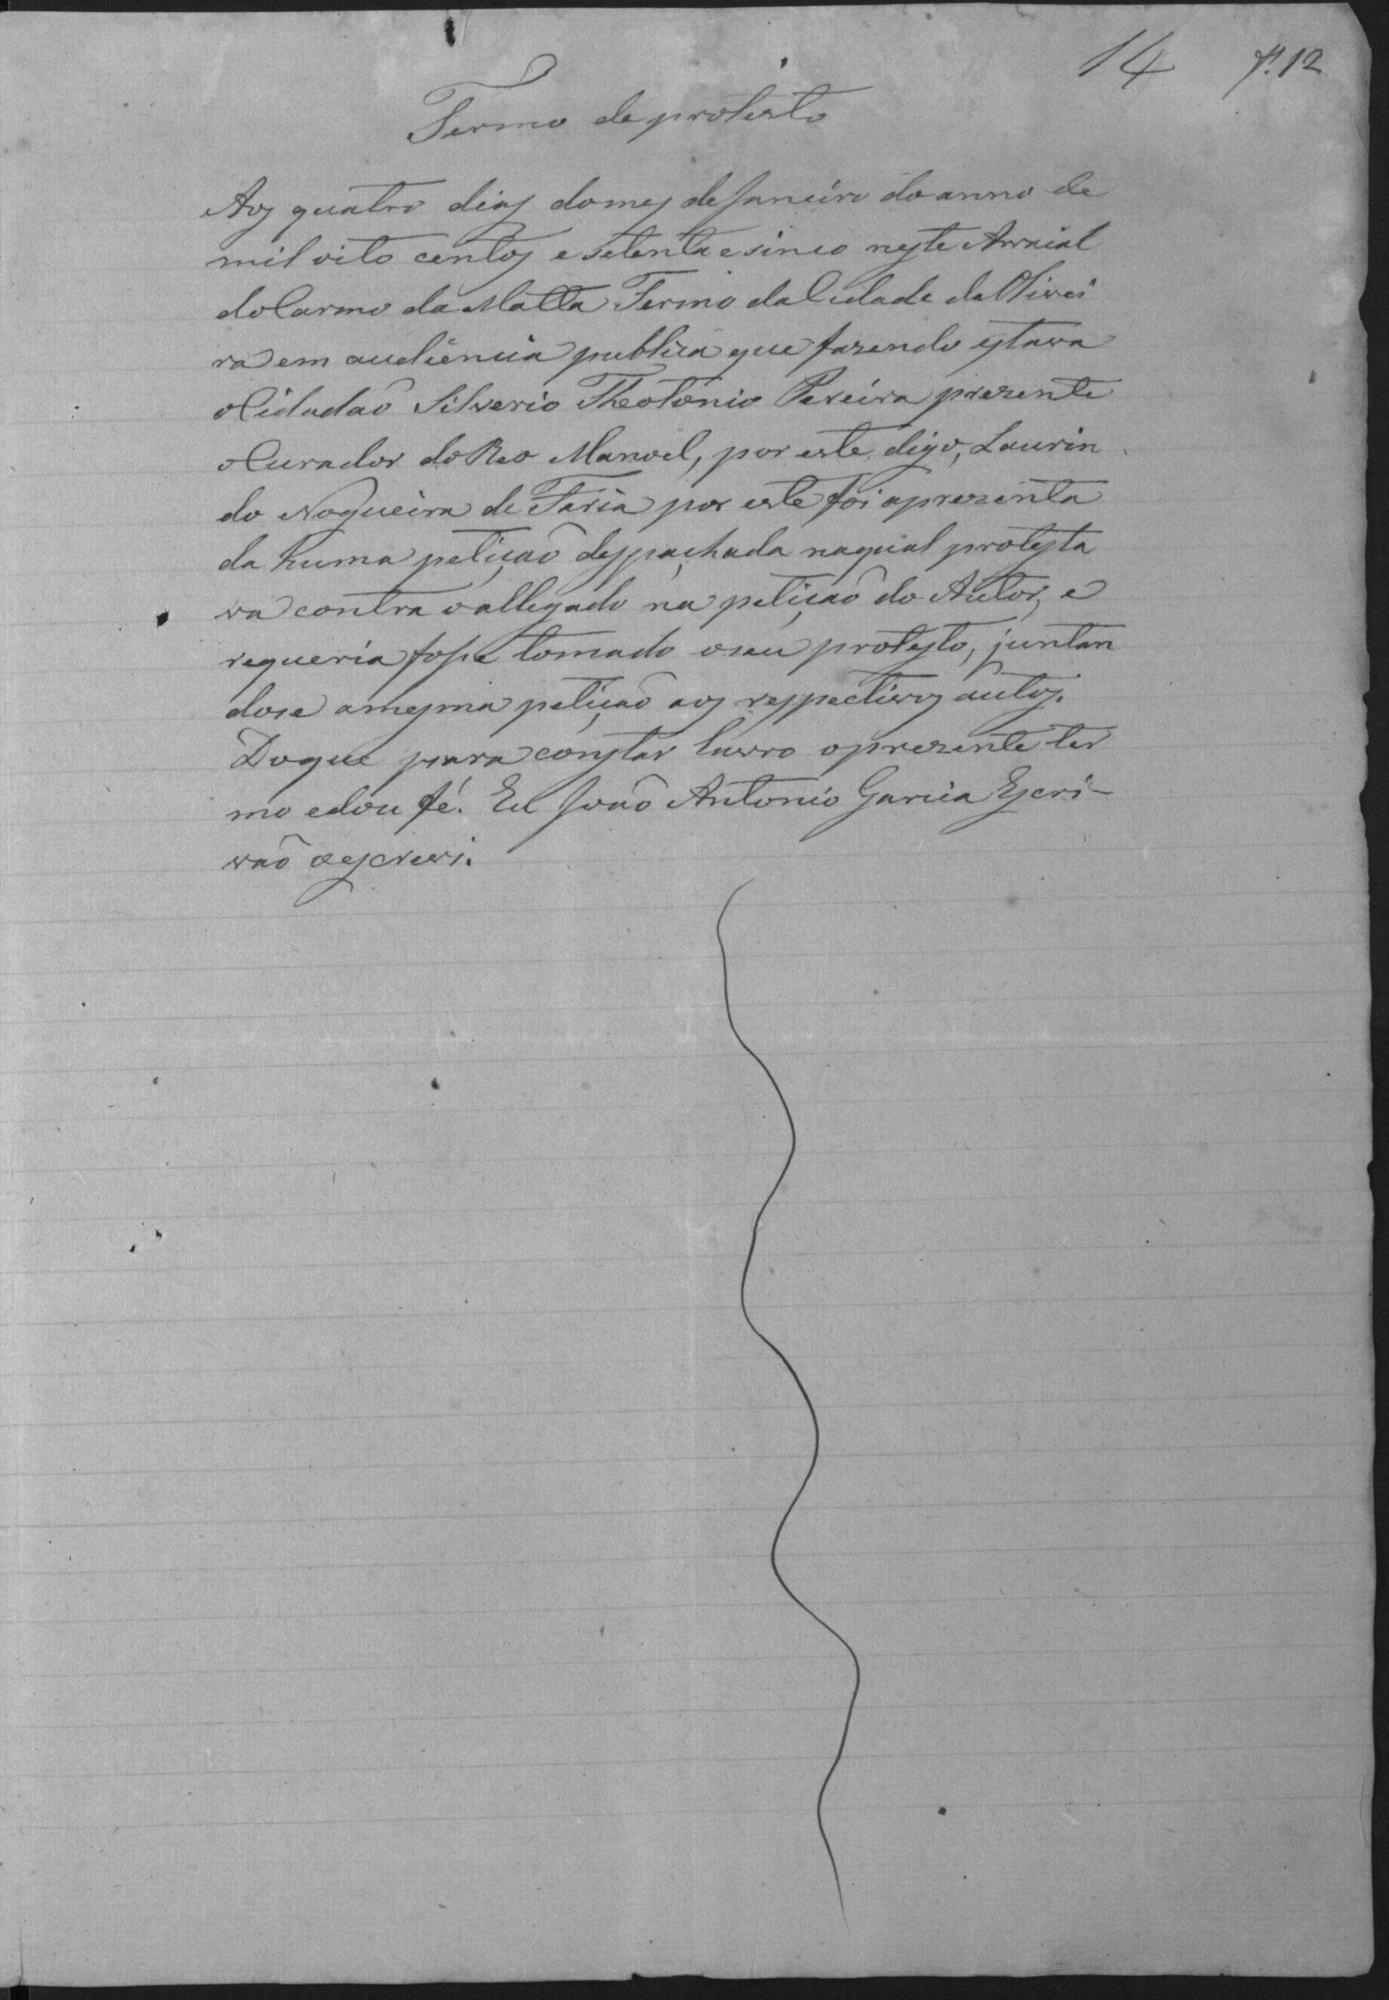 14 fl. 12
Termo de protesto
Aos quatro dias do mes de Janeiro do anno de
mil oito centos e setenta e sinco neste Arraial
do Carmo da Matta Termo da Cidade da Olivei
ra em audiencia publica que fazendo estava
o Cidadaõ Silverio Theotonio Pereira prezente
o Curador do Reo Manoel, por este, digo, Laurin
do Nogueira de Faria por este foi aprezenta
da huma petiçaõ despachada na qual protesta
va contra o allegado na petiçaõ do Autor, e
requeria fosse tomado o seu protesto, juntan
dose a mesma petiçaõ aos respectivos autos.
Do que para constar lavro o prezente ter
mo e dou fé. Eu Joaõ Antonio Garcia Escri-
vaõ o escrevi.